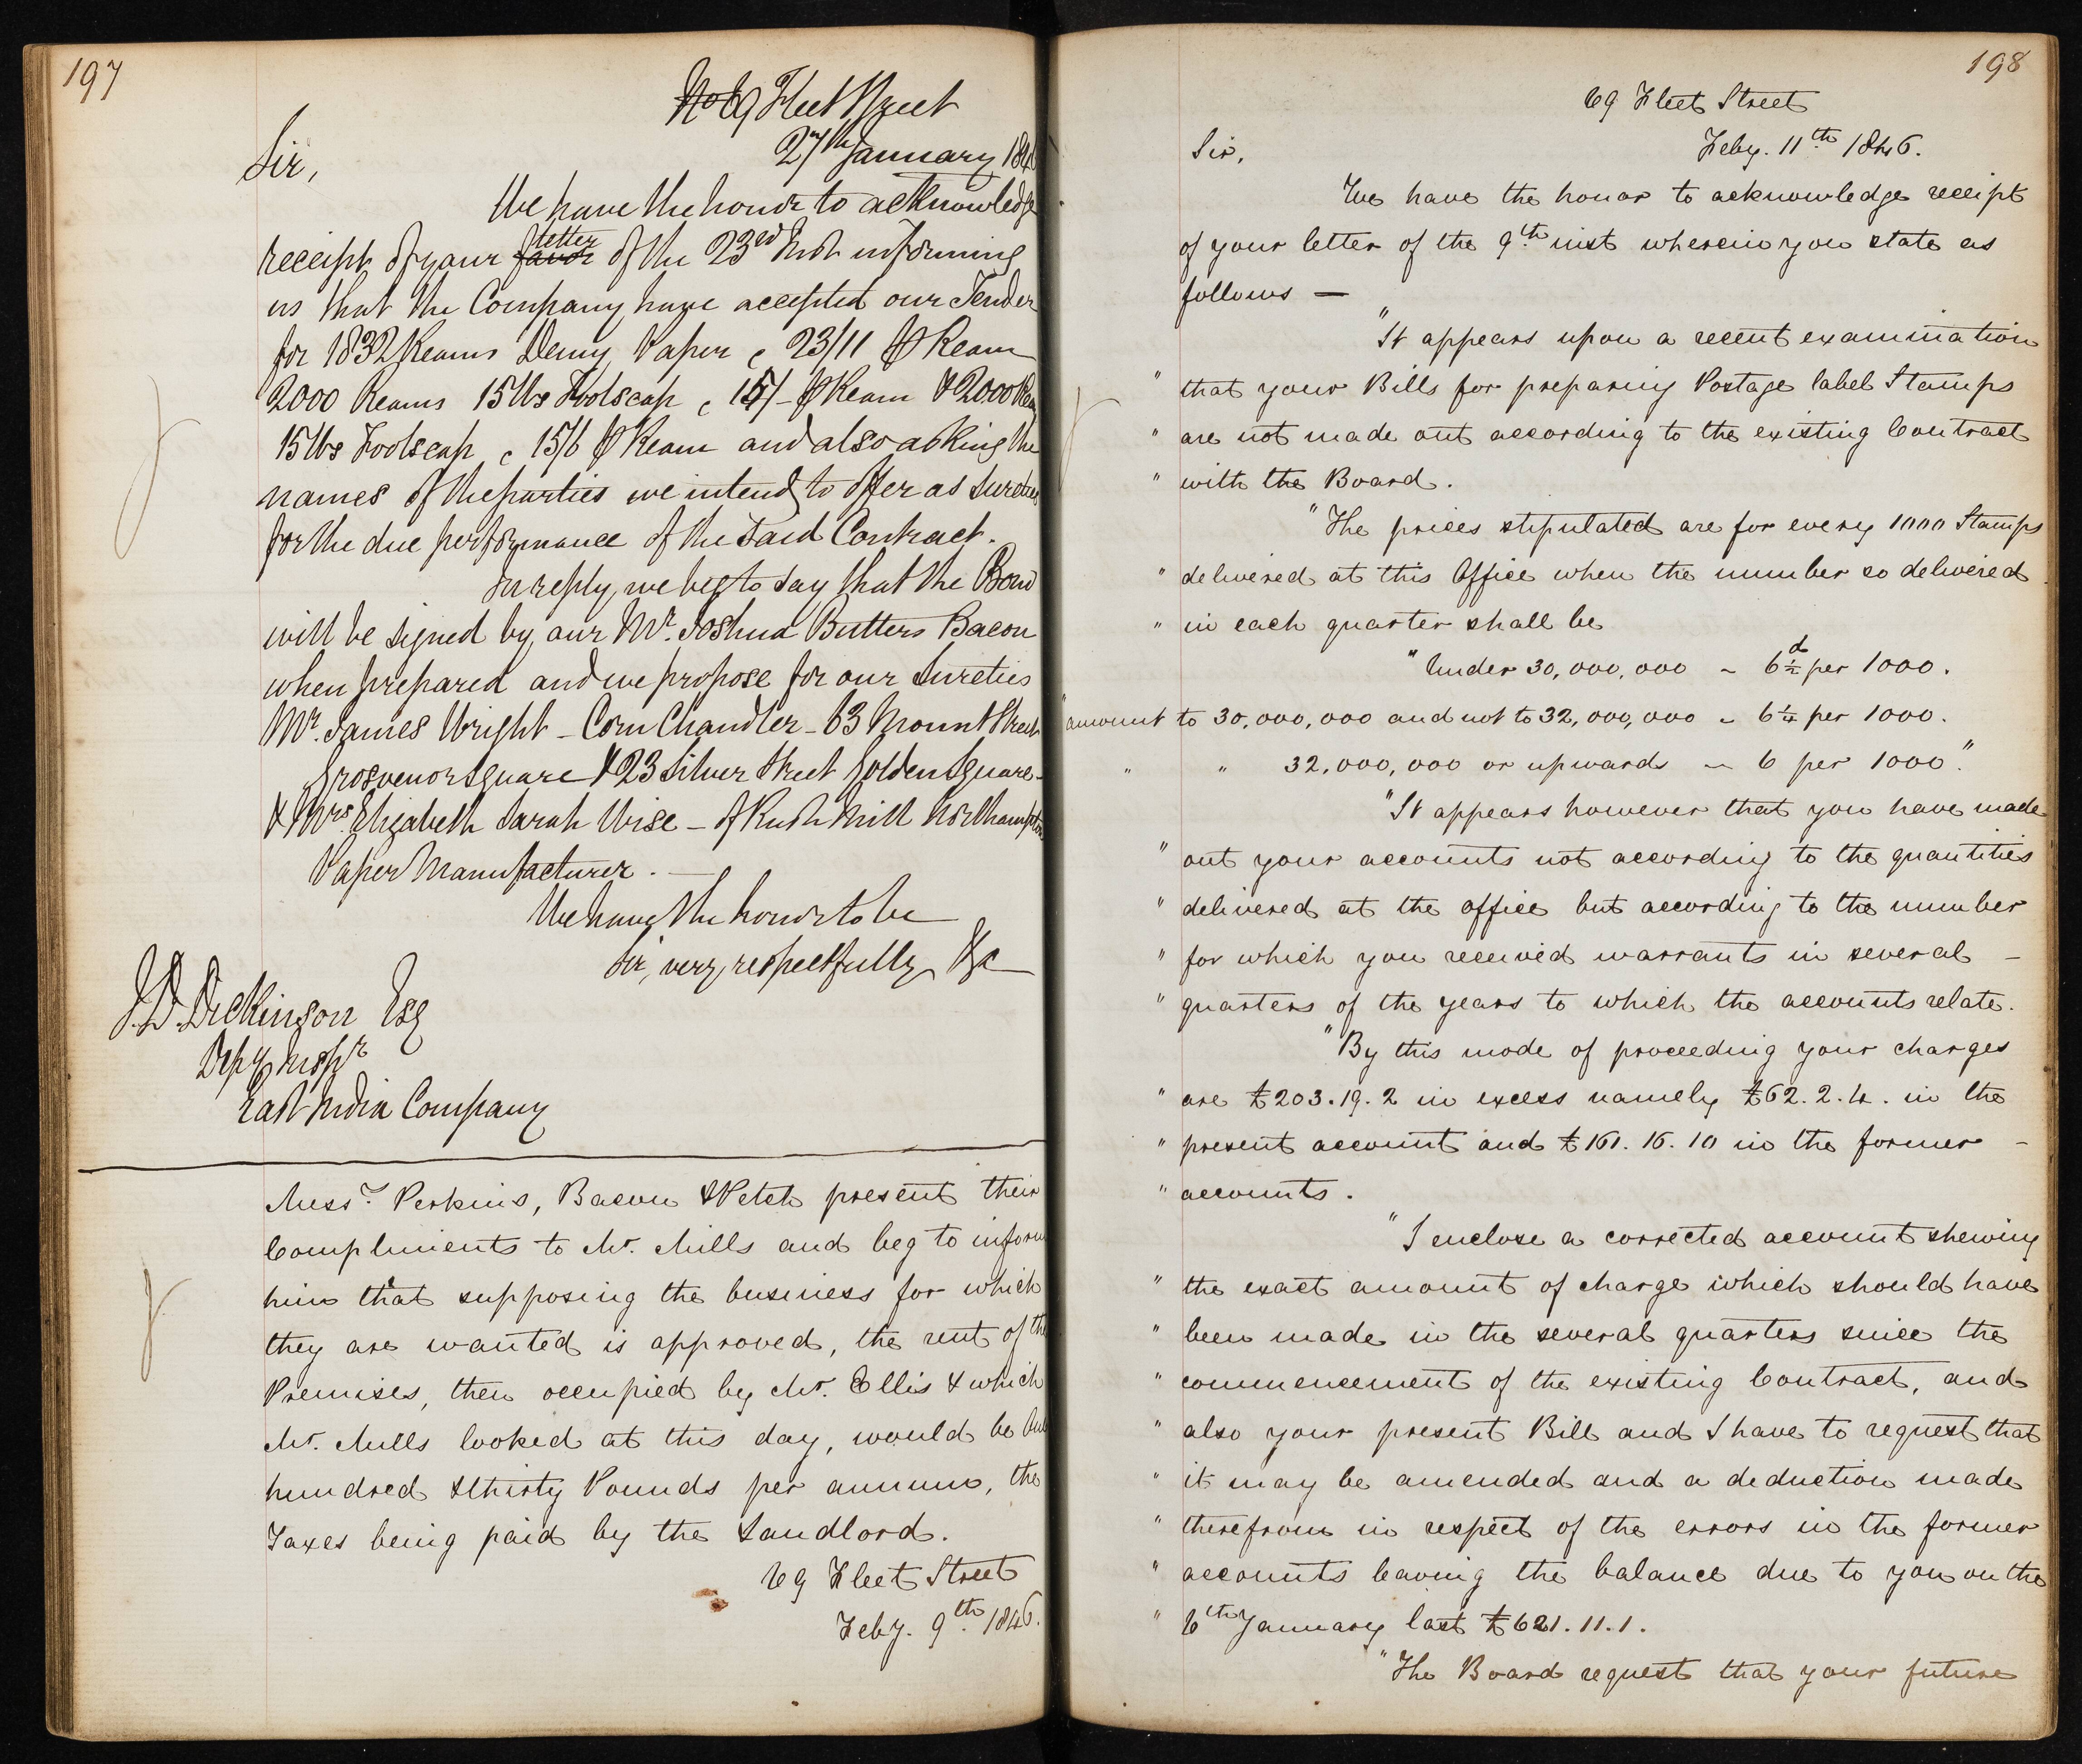 197
No 69 Fleet Street
27th January 1846
Sir,
We have the honor to acknowledge
receipt of your favor letter of the 23rd Inst informing
us that the Company have accepted our Tender
for 1832 Reams Demy Paper @ 23/11 ⅌ Ream
2000 Reams 15 lbs Foolscap @ 15/- ⅌ Ream & 2000 Reams
15 lbs Foolscap @ 15/6 ⅌ Ream and also asking the
names of the parties we intend to offer as Sureties
for the due performance of the said Contract.
In reply we beg to say that the Bond
will be signed by our Mr. Joshua Butters Bacon
when prepared and we propose for our Sureties
Mr. James Wright - Corn Chandler - 63 Mount Street
Grosvenor Square & 23 Silver Street Golden Square -
& Mrs. Elizabeth Sarah Wise - of Rush Mill Northampton
Paper Manufacturer. -
We have the honor to be
Sir, very respectfully &c
J. D. Dickinson Esq
Depy
East India Company
Messrs. Perkins, Bacon & Petch present their
Compliments to Mr. Mills and beg to inform
him that supposing the business for which
they are wanted is approved, the rent of the
Premises, then occupied by Mr. Ellis & which
Mr. Mills looked at this day, would be One
hundred & thirty Pounds per annum, the
Taxes being paid by the Landlord.
69 Fleet Street
Feby. 9th. 1846.
198
69 Fleet Street
Feby. 11th 1846.
Sir,
We have the honor to acknowledge receipt
of your letter of the 9th. inst wherein you state as
follows —
"It appears upon a recent examination
" that your Bills for preparing Postage label Stamps
" are not made out according to the existing Contract
" with the Board.
"The prices stipulated are for every 1000 Stamps
" delivered at this Office when the number so delivered
" in each quarter shall be
"Under 30,000,000 - 6½d per 1000.
"amount to 30,000,000 and not to 32,000,000 - 6¼ per 1000.
" " 32,000,000 or upwards - 6 per 1000".
"It appears however that you have made
" out your accounts not according to the quantities
" delivered at the office but according to the number
" for which you received warrants in several -
" quarters of the years to which the accounts relate.
"By this mode of proceeding your charges
" are £203.19.2 in excess namely £62.2.4. in the
" present account and £161.16.10 in the former -
" accounts.
"I enclose a corrected account shewing
" the exact amount of charge which should have
" been made in the several quarters since the
" commencement of the existing Contract, and
" also your present Bill and I have to request that
" it may be amended and a deduction made
" therefrom in respect of the errors in the former
" accounts leaving the balance due to you on the
" 6th January last £621.11.1.
"The Board request that your future